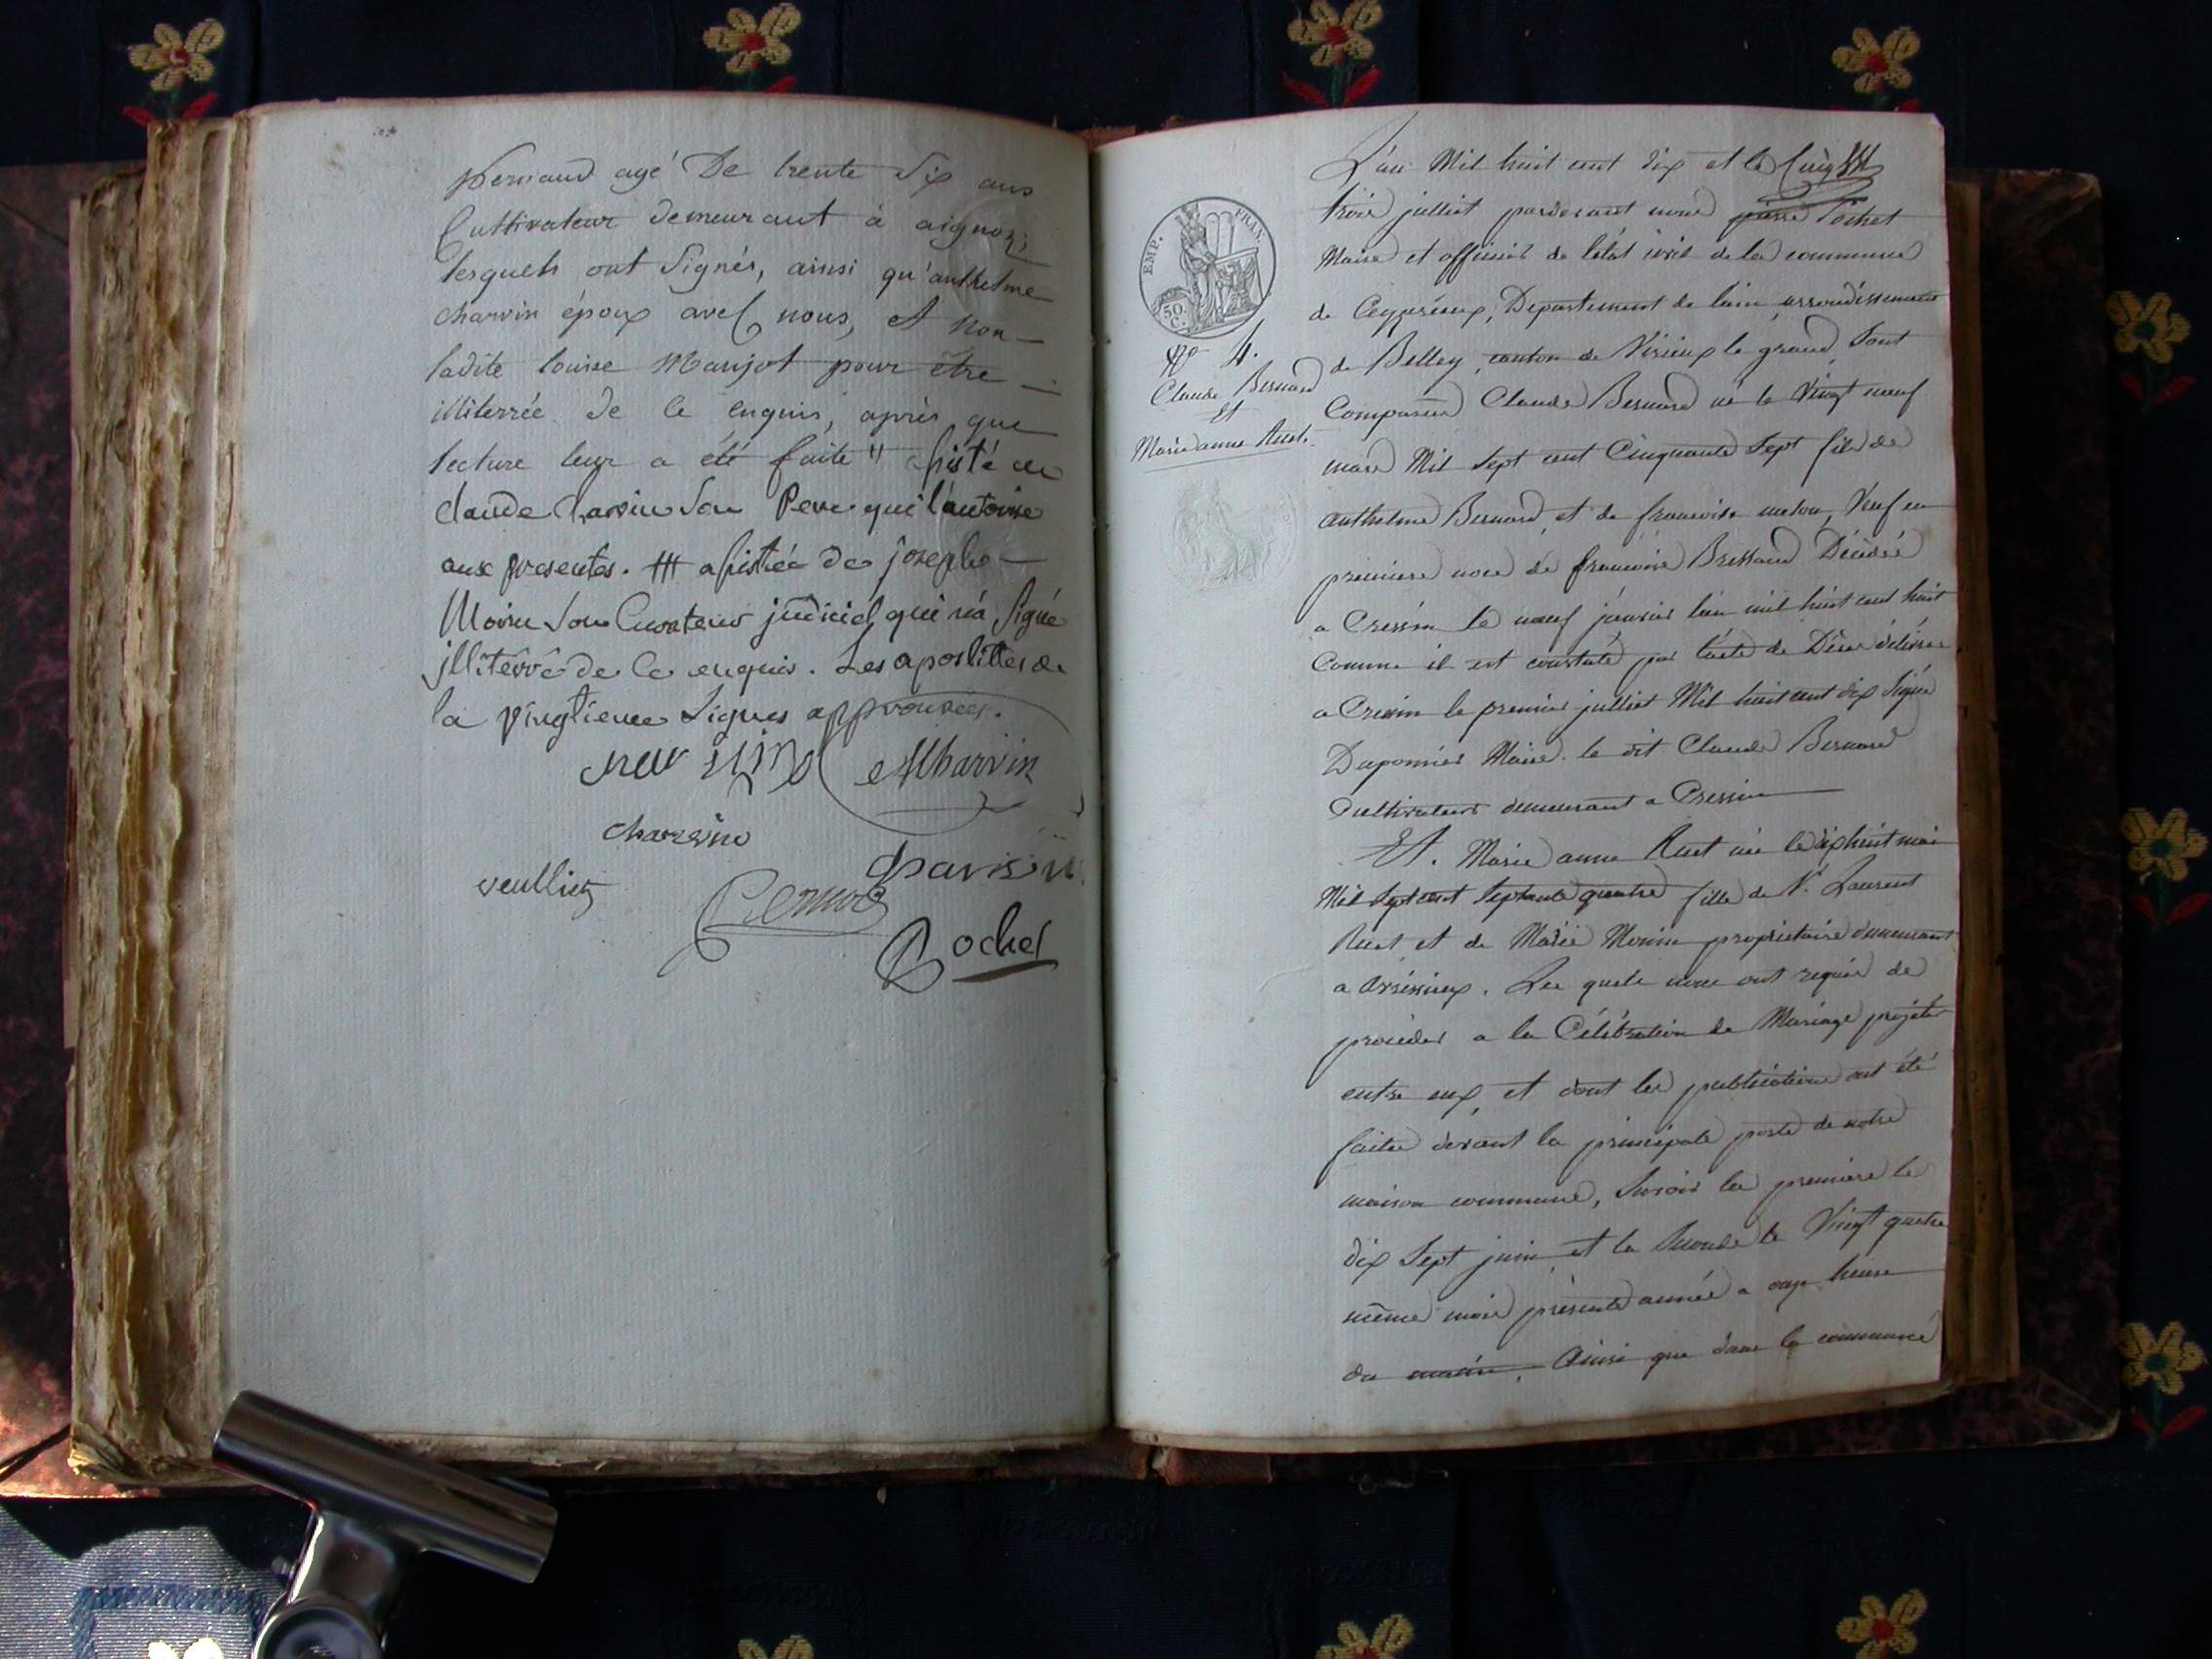 Bernard agé De trente Six ans
Cultivateur demeurant à aignoz;
lesquels ont Signés, ainsi qu'anthelme
charvin époux avec nous, et Non
ladite louise Marijot pour être
illiterrée de ce enquis, après que
lecture leur a été faite # assisté de
claude Charvin Son Pere qui l'autorise
aux presentes. ### assistée de joseph
Moiru Son Curateur judiciel qui n'a Signé
jlliterré de ce enquis. Les apostilles de
la vingtieme Lignes approuvées.
Charvin
charvin
veullien
Rochet
EMP. FRAN.
50 C.
No 4.
Claude Bernard
Et
Marie anne Ruet.
L'an Mil huit cent dix et le
trois julliet pardevant nous pierre Rochet
Maire et officier de létat ivil de la commune
de Ceyzérieux, Departement de lain, arrondissement
de Belley, canton de Virieux le grand, Sont
Comparus Claude Bernard né le Vingt neuf
mars Mil Sept cent Cinquante Sept fils de
anthelme Bernard, et de francoise melon, Veuf en
premiere noce de francoise Bressand Décédée
a Cressin le neuf janvier lan mil huit cent huit
Comme il est constaté par lacte de Décès délivré
a Cressin le premier julliet Mil huit cent dix Signé
Duponnier Maire. le dit Claude Bernard
Cultivateur demeurant a Cressin
Et. Marie anne Ruet née le dixhuit mai
Mil Sept cent Septante quatre fille de Laurent
Ruet et de Marie Monin propriétaire demeurant
a avrissieux. Les quels nous ont requis de
procéder a la Célébration de Mariage projeter
entre eux, et dont les publications ont été
faites devant la principale porte de notre
maison commune, Savoir la premiere le
dix Sept juin et la Seconde le Vingt quatre
même mois présente année a onze heure
du matin. Ainsi que dans la commune